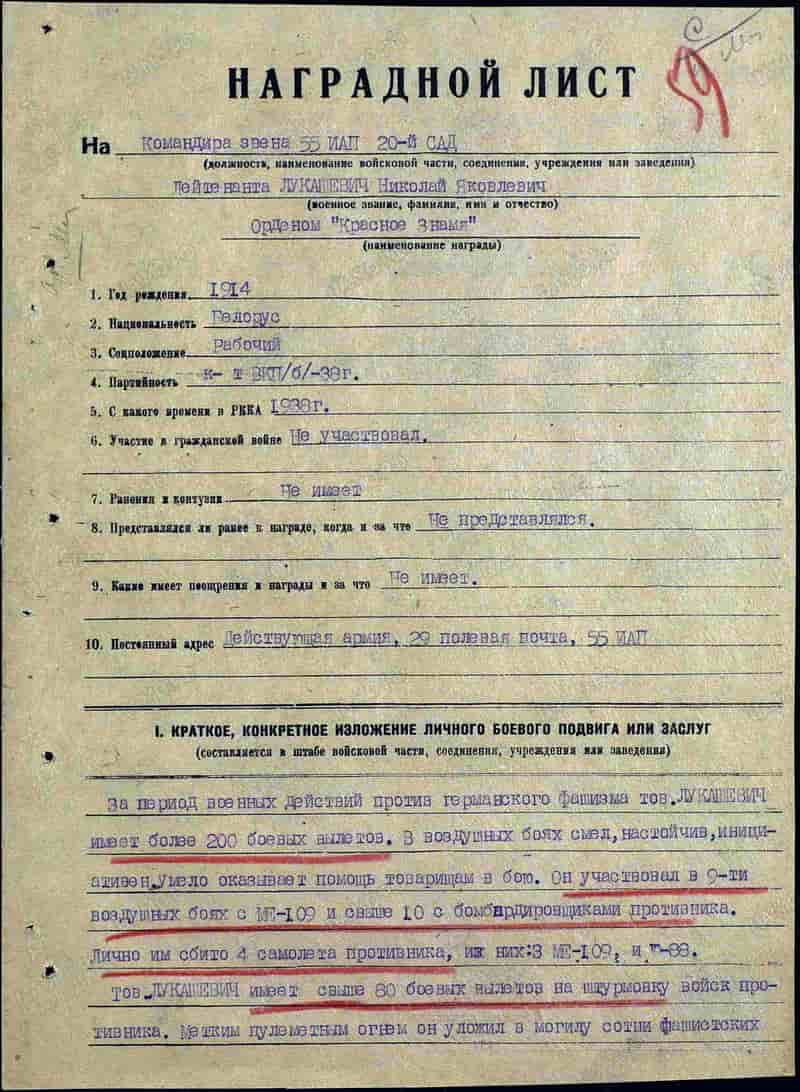 59
НАГРАДНОЙ ЛИСТ
На Командира звена 55 ИАП 20-й САД
(должность, наименование войсковой части, соединения, учреждения или заведения)
Лейтенанта ЛУКАШЕВИЧ Николай Яковлевич
(военное звание, фамилия, имя и отчество)
Орденом "Красное Знамя"
(наименование награды)
1. Год рождения 1914
2. Национальность Белорус
3. Соцположение Рабочий
4. Партийность к- т ВКП/б/-38г.
5. С какого времени в РККА 1938г.
6. Участие в гражданской войне Не участвовал.
7. Ранения и контузии Не имеет
8. Представлялся ли ранее к награде, когда и за что Не представлялся.
9. Какие имеет поощрения и награды и за что Не имеет.
10. Постоянный адрес Действующая армия, 29 полевая почта, 55 ИАП
I. КРАТКОЕ, КОНКРЕТНОЕ ИЗЛОЖЕНИЕ ЛИЧНОГО БОЕВОГО ПОДВИГА ИЛИ ЗАСЛУГ
(составляется в штабе войсковой части, соединения, учреждения или заведения)
За период военных действий против германского фашизма тов.ЛУКАШЕВИЧ
имеет более 200 боевых вылетов. В воздушных боях смел,настойчив,иници-
ативен.умело оказывает помощь товарищам в бою. Он участвовал в 9-ти
воздушных боях с МЕ-109 и свыше 10 с бомбардировщиками противника.
Лично им сбито 4 самолета противника, из них:3 МЕ-109, и -88.
тов.ЛУКАШЕВИЧ имеет свыше 80 боевых вылетов на штурмовку войск про-
тивника. Метким пулеметным огнем он уложил в могилу сотни фашистских